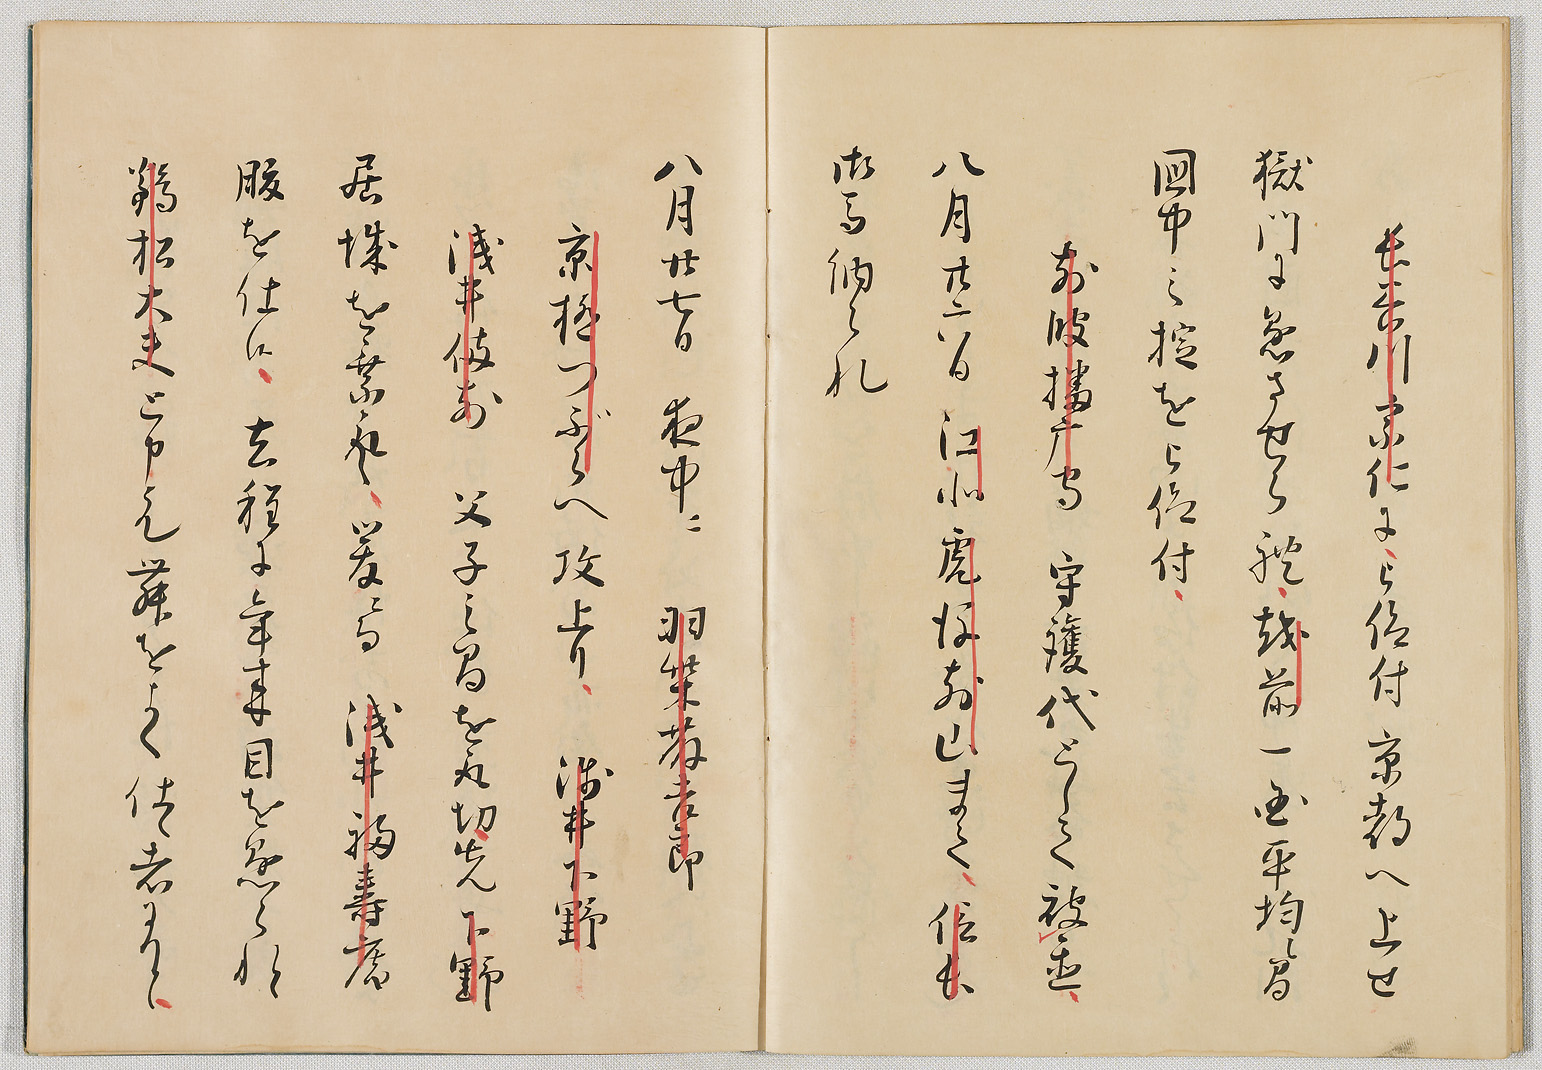 長谷川宗仁に被仰付京都へ上せ
獄門に懸させられ越前一国平均之間
国中之掟を被仰付
前波播磨守守護代として被置
八月廿六日江北虎後前山まて信長
御馬納られ
八月廿七日夜中ニ羽柴藤吉郎
京極つぶらへ攻上り浅井下野
浅井備前父子之間を取切先下野
居城を乗取爰にて浅井福寿庵
腹を仕候去程に年来目を懸られし
鶴松大夫と申候て舞をよく仕者にて